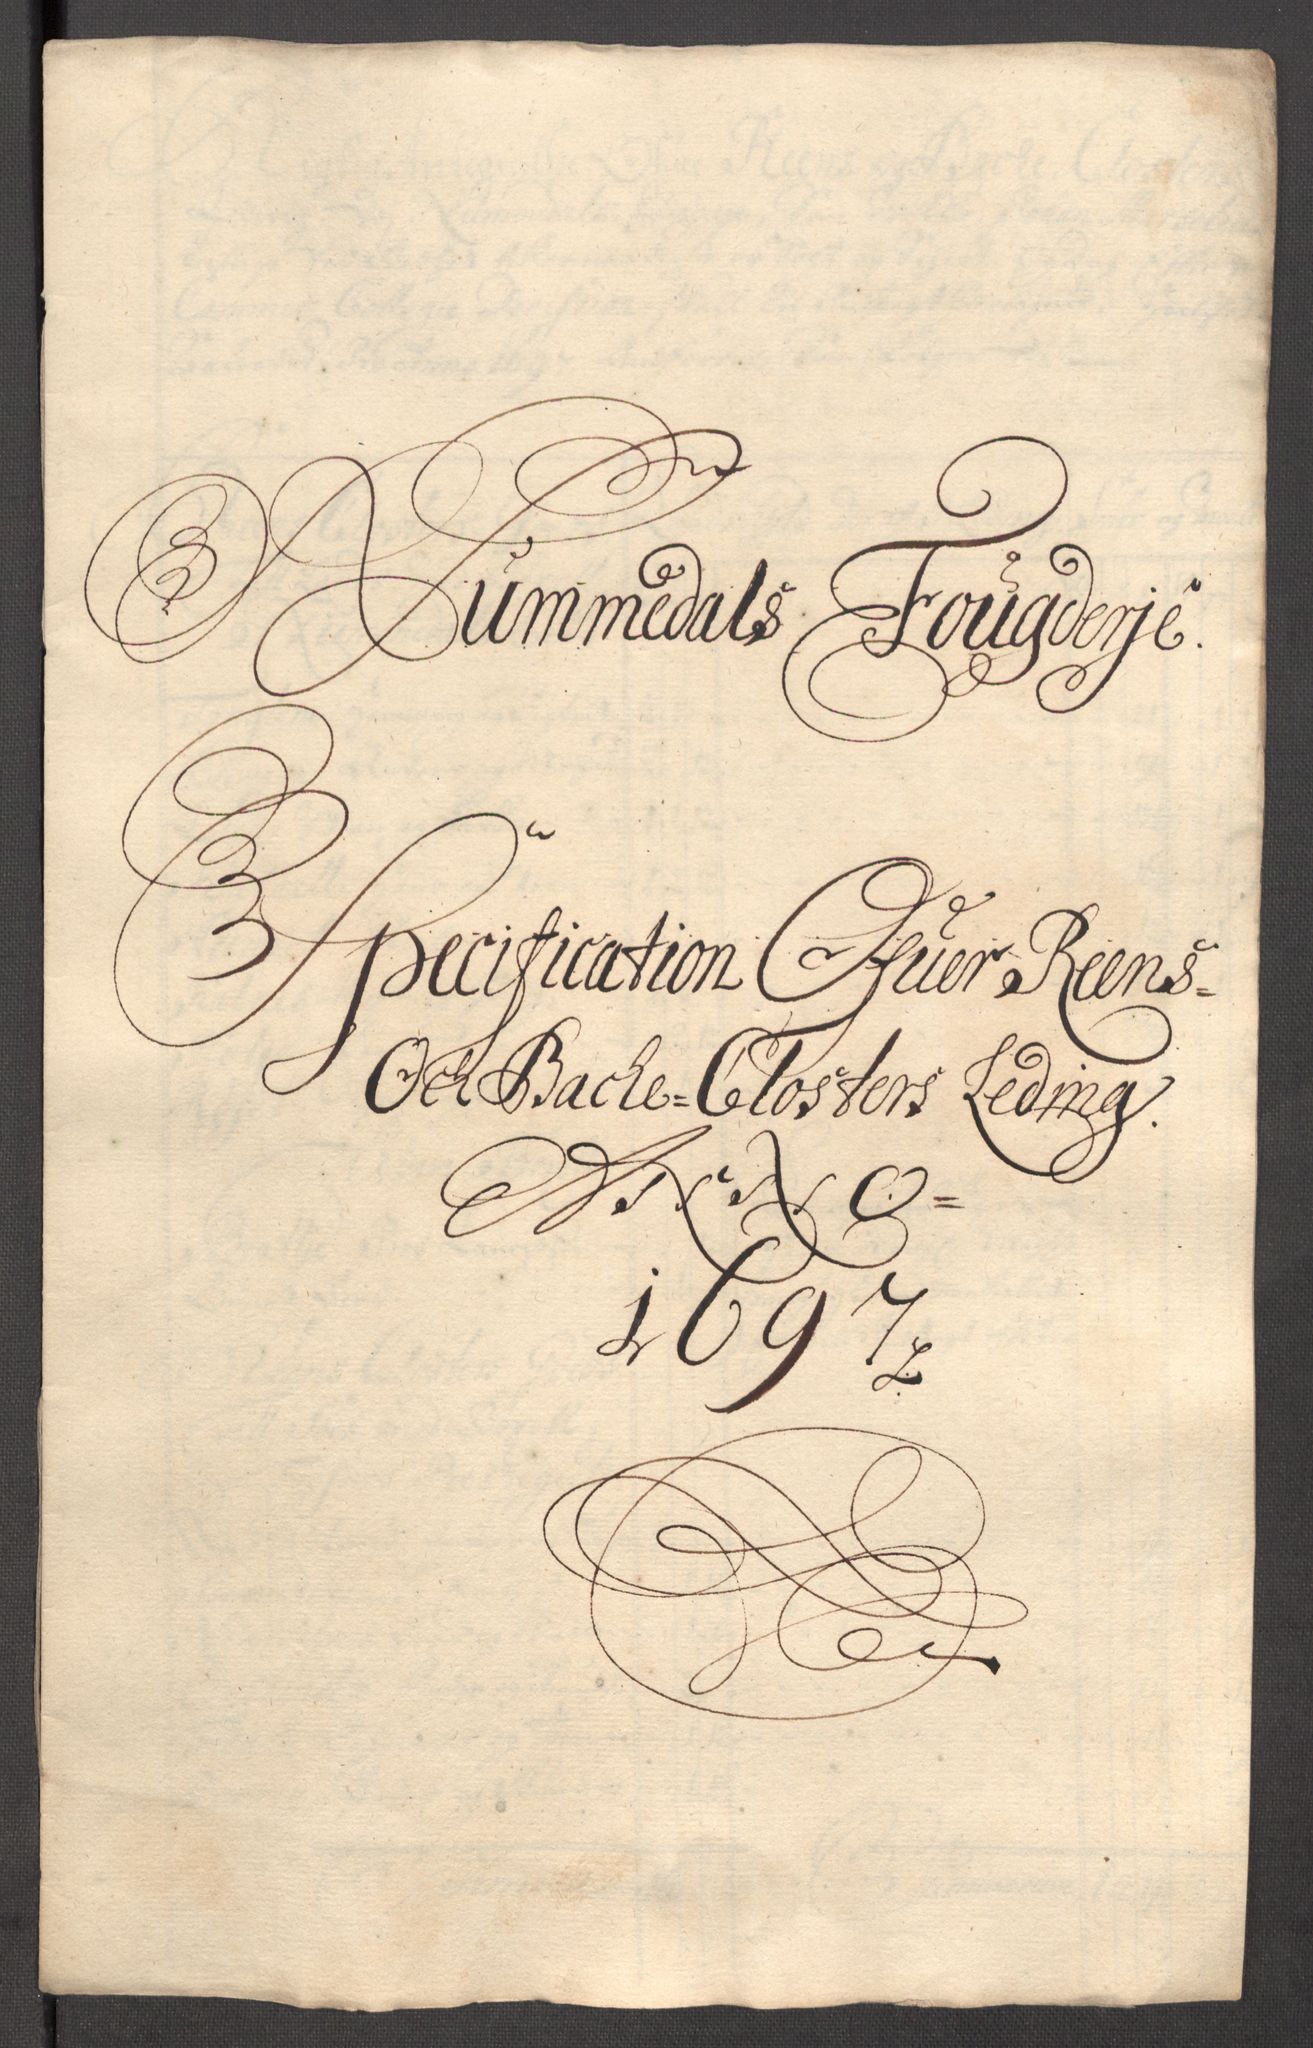 Nummedals Fougderje.
Specification Ofuer Reens=
Och Backe=Closters Leding.
ANNO=
1697